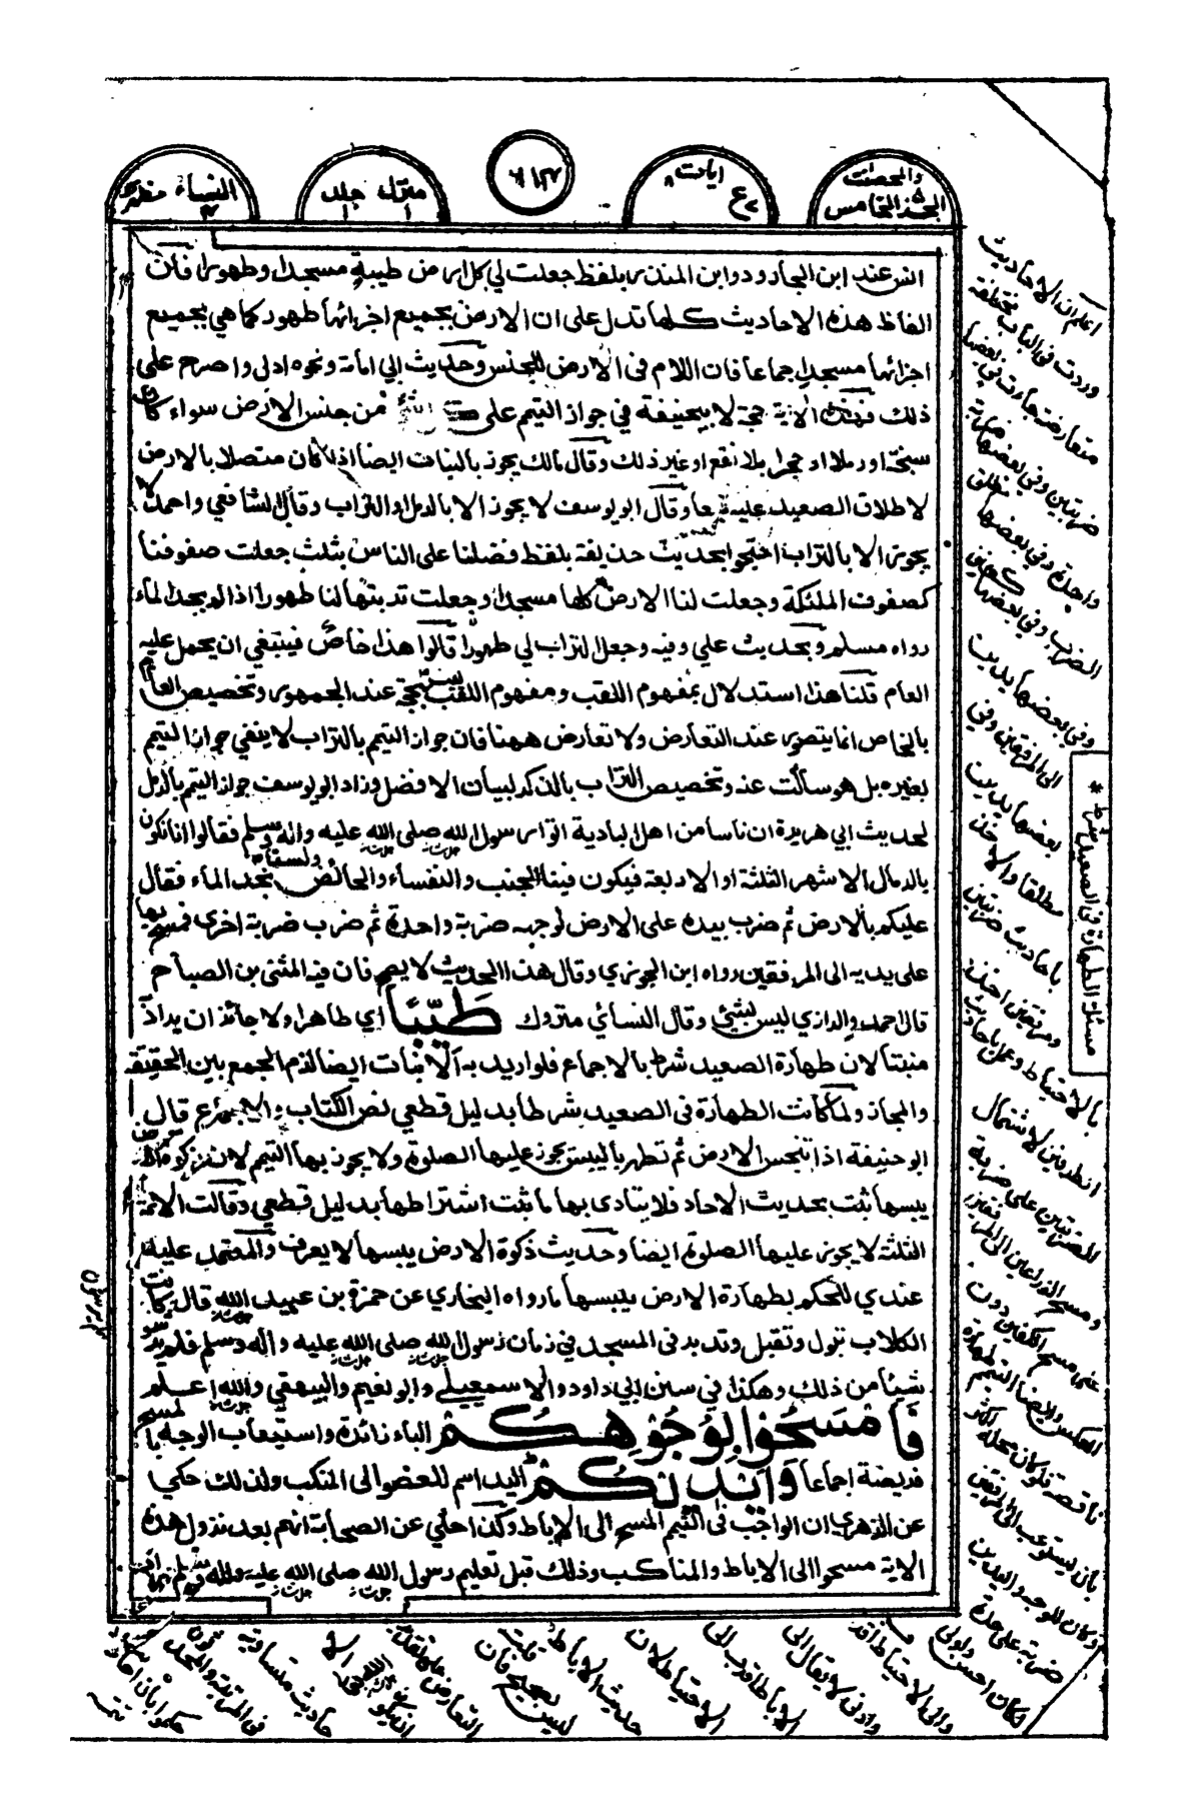 والمحصنت
الجزء الخامس
ايات
ع
منزل جلد
النساء مظهري
انس عند ابن الجارود وابن المنذر بلفظ جعلت لي كل ارض طيبة مسجدا وطهورا فان
الفاظ هذه الاحاديث كلها تدل على ان الارض بجميع اجزائها طهور كما هي بجميع
اجزائها مسجد اجماعا فان اللام في الارض للجنس وحديث ابي امامة ونحوه ادل واصرح على
ذلك فهذه الاية حجة لابيحنيفة في جواز التيمم على من جنس الارض سواء كان
سبخة او رملا او حجرا بلا نقع او غير ذلك وقال مالك يجوز بالنبات ايضا اذا كان متصلا بالارض
لاطلاق الصعيد عليه تبعا وقال ابو يوسف لا يجوز الا بالرمل او التراب وقال الشافعي واحمد لا
يجوز الا بالتراب احتجوا بحديث حذيفة بلفظ فضلنا على الناس بثلث جعلت صفوفنا
كصفوف الملئكة وجعلت لنا الارض كلها مسجدا وجعلت تربتها لنا طهورا اذا لم نجد الماء
رواه مسلم وبحديث علي وفيه وجعل التراب لي طهورا قالوا هذا خاص فينبغي ان يحمل عليه
العام قلنا هذا استدلال بمفهوم اللقب ومفهوم اللقب ليس بحجة عند الجمهور وتخصيص العام
بالخاص انما يتصور عند التعارض ولا تعارض ههنا فان جواز التيمم بالتراب لا ينفي جواز التيمم
بغيره بل هو ساكت عنه وتخصيص التراب بالذكر لبيان الافضل وزاد ابو يوسف جواز التيمم بالرمل
لحديث ابي هريرة ان ناسا من اهل البادية اتوا رسول الله صلى الله عليه واله وسلم فقالوا انا نكون
بالرمال الاشهر الثلثة او الاربعة فيكون فينا الجنب والنفساء والحائض ولسنا نجد الماء فقال
عليكم بالارض ثم ضرب بيده على الارض لوجهه ضربة واحدة ثم ضرب ضربة اخرى فمسح بها
على يديه الى المرفقين رواه ابن الجوزي وقال هذا الحديث لا يصح فان فيه المثنى بن الصباح
قال احمد والرازي ليس بشئ وقال النسائي متروك طَيِّبًا اي طاهرا ولا جائز ان يراد
منبتا لان طهارة الصعيد شرط بالاجماع فلو اريد به الانبات ايضا لزم الجمع بين الحقيقة
والمجاز ولما كانت الطهارة في الصعيد شرطا بدليل قطعي نص الكتاب والاجماع قال
ابو حنيفة اذا تنجس الارض ثم تطهر باليبس يجوز عليها الصلوة ولا يجوز بها التيمم لان زكوة الارض
يبسها ثبت بحديث الاحاد فلا يتادى بها ما ثبت اشتراطها بدليل قطعي وقالت الائمة
الثلثة لا يجوز عليها الصلوة ايضا وحديث ذكوة الارض يبسها لا يعرف والمعتمد عليه
عندي للحكم بطهارة الارض بيبسها ما رواه البخاري عن حمزة بن عبيد الله قال كانت
الكلاب تبول وتقبل وتدبر في المسجد في زمان رسول الله صلى الله عليه واله وسلم فلم يرشوا
شيئا من ذلك وهكذا في سنن ابي داود والاسمعيلي وابو نعيم والبيهقي والله اعلم
فَامْسَحُوْا بِوُجُوْهِكُمْ الباء زائدة واستيعاب الوجه بالمسح
فريضة اجماعا وَاَيْدِيْكُمْ اليد اسم للعضو الى المنكب ولذلك حكي
عن الزهري ان الواجب في التيمم المسح الى الاباط وكذا حكي عن الصحابة انهم بعد نزول هذه
الاية مسحوا الى الاباط والمناكب وذلك قبل تعليم رسول الله صلى الله عليه واله وسلم
مسئلة الطهارة في الصعيد شرط
اعلم ان الاحاديث
وردت في الباب مختلفة
متعارضة جاءت في بعضها
ضربتين وفي بعضها ضربة
واحدة وفي بعضها مطلق
الضرب وفي بعضها كفين
وفي بعضها يدين
الى المرفقين وفي
بعضها يدين
مطلقا والاخذ
باحاديث ضربتين
ومرفقين اخذ
بالاحتياط وعمل باحاديث
الطرفين لاشتمال
الضربتين على ضربة
ومسح الذراعين الى المرفقين
على مسح الكفين دون
العكس وايضا التيمم طهارة
ناقصة فلو كان محله اكثر
بان يستوعب الى المرفقين
وكان للوجه واليدين
ضربة على حدة
لكان احسن واولى
والى الاحتياط اقرب
وادنى لا يقال الى
الاباط اقرب الى
الاحتياط لان
حديث الاباط
ليس بصحيح فان قلت